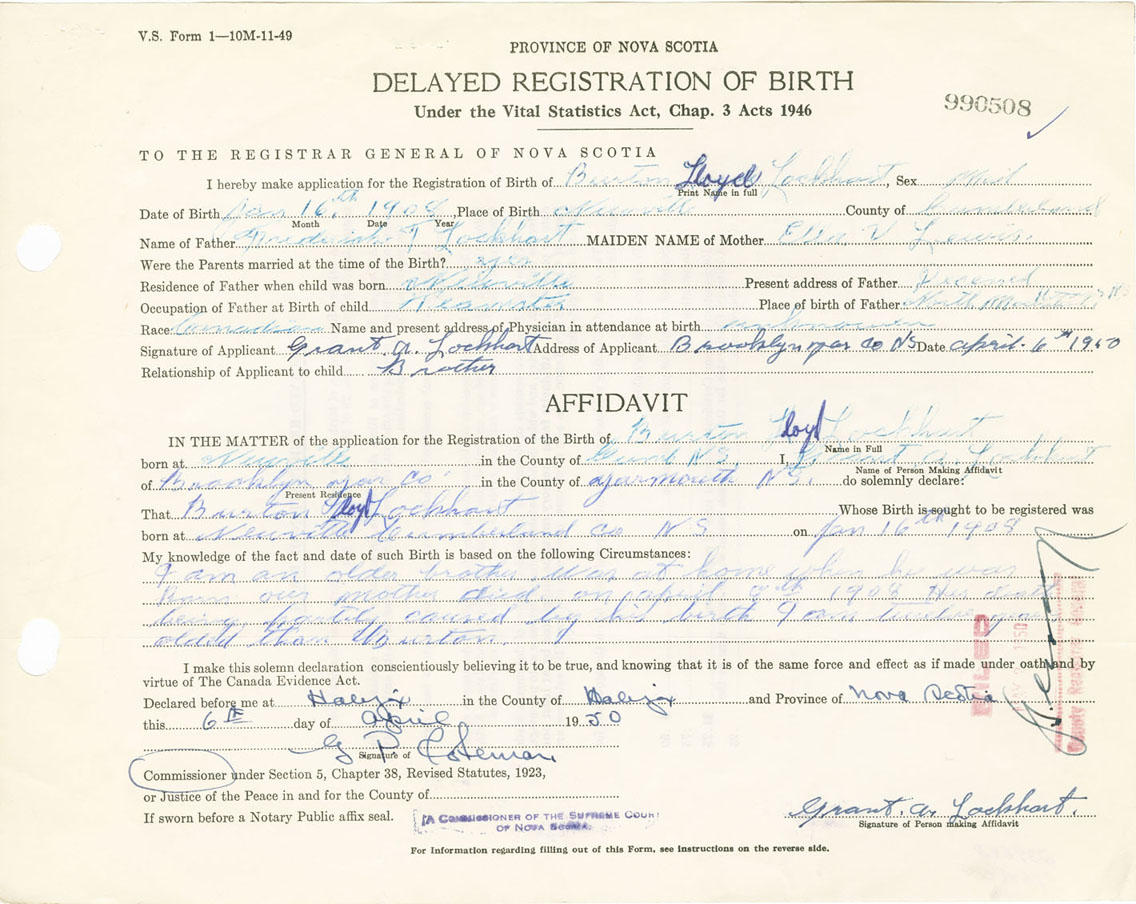 V.S. Form 1—10M-11-49
PROVINCE OF NOVA SCOTIA
DELAYED REGISTRATION OF BIRTH
Under the Vital Statistics Act, Chap. 3 Acts 1946
990508
TO THE REGISTRAR GENERAL OF NOVA SCOTIA
I hereby make application for the Registration of Birth of Burton Lloyd Lockhart, Sex
Print Name in full
Date of Birth Jan 16th 1908, Place of Birth Newville County of Cumberland
Month Date Year
Name of Father Frederick T Lockhart MAIDEN NAME of Mother V Lewis
Were the Parents married at the time of the Birth? yes
Residence of Father when child was born Newville Present address of Father Deceased
Occupation of Father at Birth of child Teamster Place of birth of Father North NS
Race Canadian Name and present address of Physician in attendance at birth unknowen
Signature of Applicant Grant A Lockhart Address of Applicant Brooklyn yar co NS Date april 6th 1950
Relationship of Applicant to child Brother
AFFIDAVIT
IN THE MATTER of the application for the Registration of the Birth of Burton Lloyd Lockhart
Name in Full
born at Newville in the County of Cumb NS I, Grant A Lockhart
Name of Person Making Affidavit
of Brooklyn yar Co in the County of yarmouth NS. do solemnly declare:
Present Residence
That Burton Lloyd Lockhart Whose Birth is sought to be registered was
born at Newville Cumberland Co NS on Jan 16th 1908
My knowledge of the fact and date of such Birth is based on the following Circumstances:
I am an older brother was at home when he was
born our mother died on april 1908 death
being partily caused by his birth I am twelve years
olded than Burton
I make this solemn declaration conscientiously believing it to be true, and knowing that it is of the same force and effect as if made under oath and by
virtue of The Canada Evidence Act.
Declared before me at Halifax in the County of Halifax and Province of Nova Scotia
this 6th day of April 1950
G P Coleman
Signature of
Commissioner under Section 5, Chapter 38, Revised Statutes, 1923,
or Justice of the Peace in and for the County of
If sworn before a Notary Public affix seal.
[A COMMISSIONER OF THE SUPREME COURT
OF NOVA SCOTIA
Grant A. Lockhart.
Signature of Person making Affidavit
For Information regarding filling out of this Form, see instructions on the reverse side.